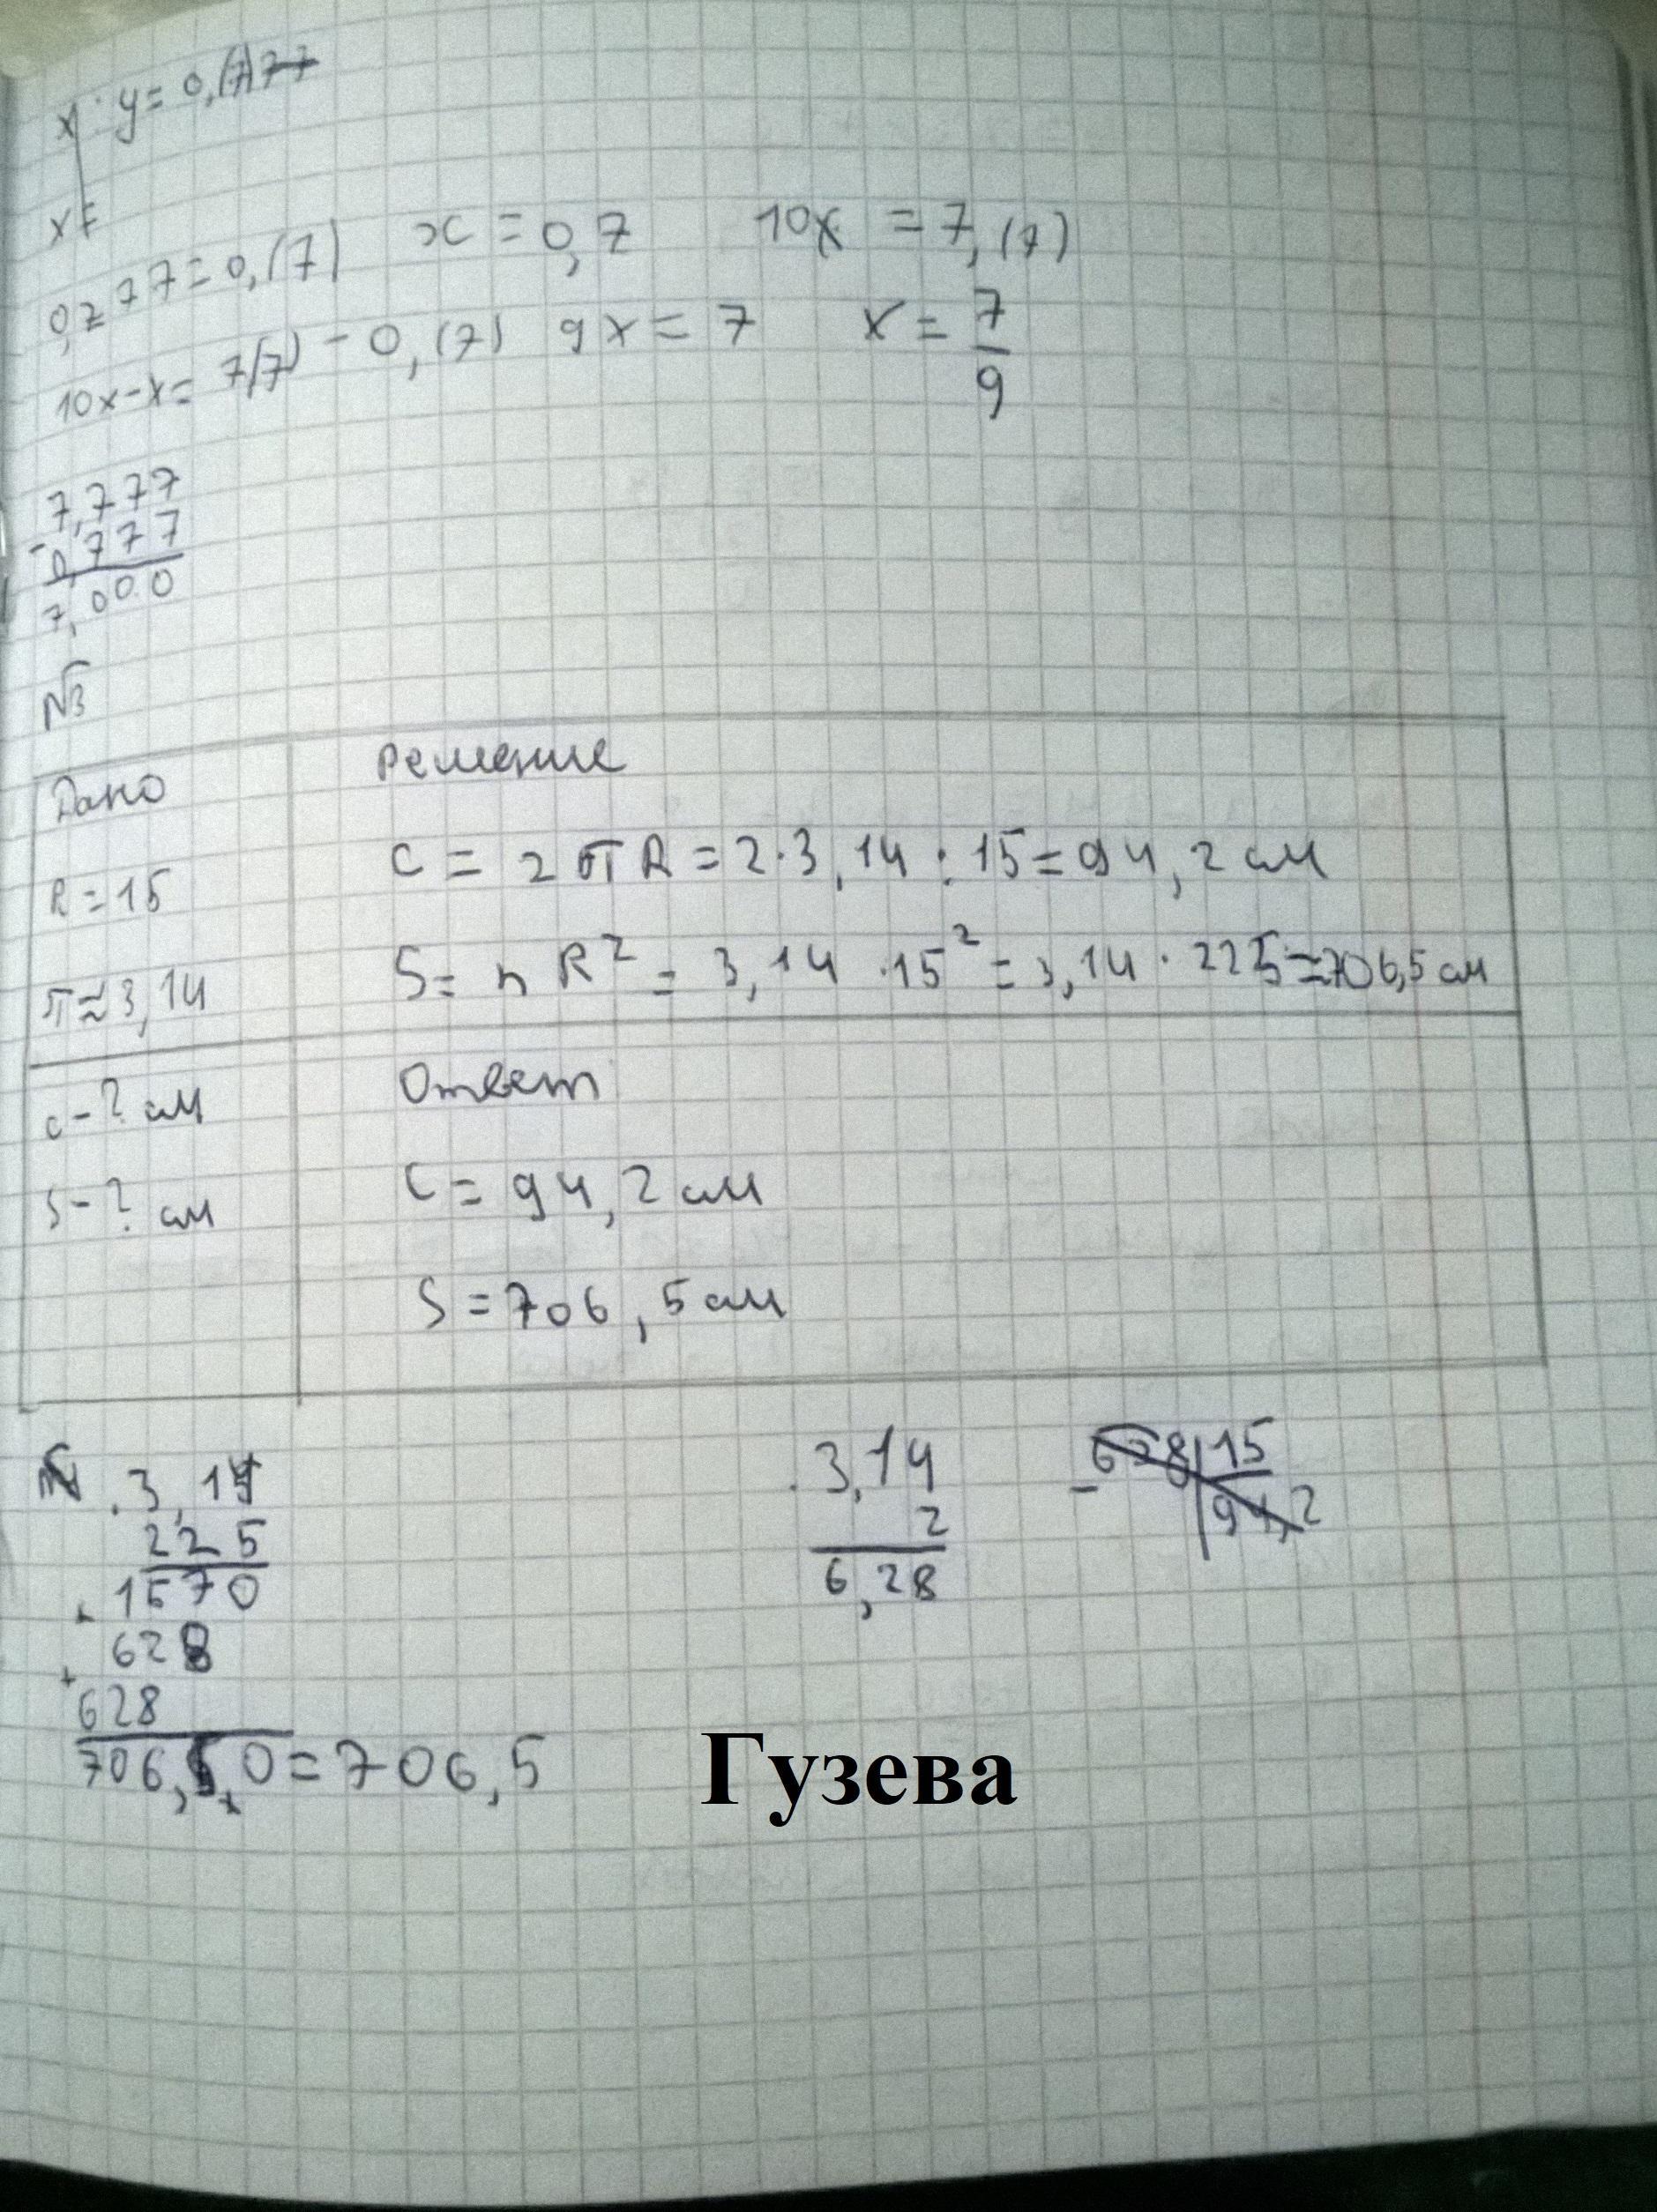 x y = 0,(7)77
x =
0,777 = 0,(7) x = 0,7 10x = 7,(7)
10x-x = 7(7) - 0,(7) 9x = 7 x = 7/9
- 7,777
0,777
7,000
№3
Дано
Решение
R = 15
C = 2πR = 2·3,14 : 15 = 94,2 см
π ≈ 3,14
S = п R² = 3,14 · 15² = 3,14 · 225 = 706,5 см
c - ? см
S - ? см
Ответ
C = 94,2 см
S = 706,5 см
. 3,14
225
+ 1570
628
+ 628
706,5,0 = 706,5
. 3,14
2
6,28
- 628 | 15
94,2
Гузева